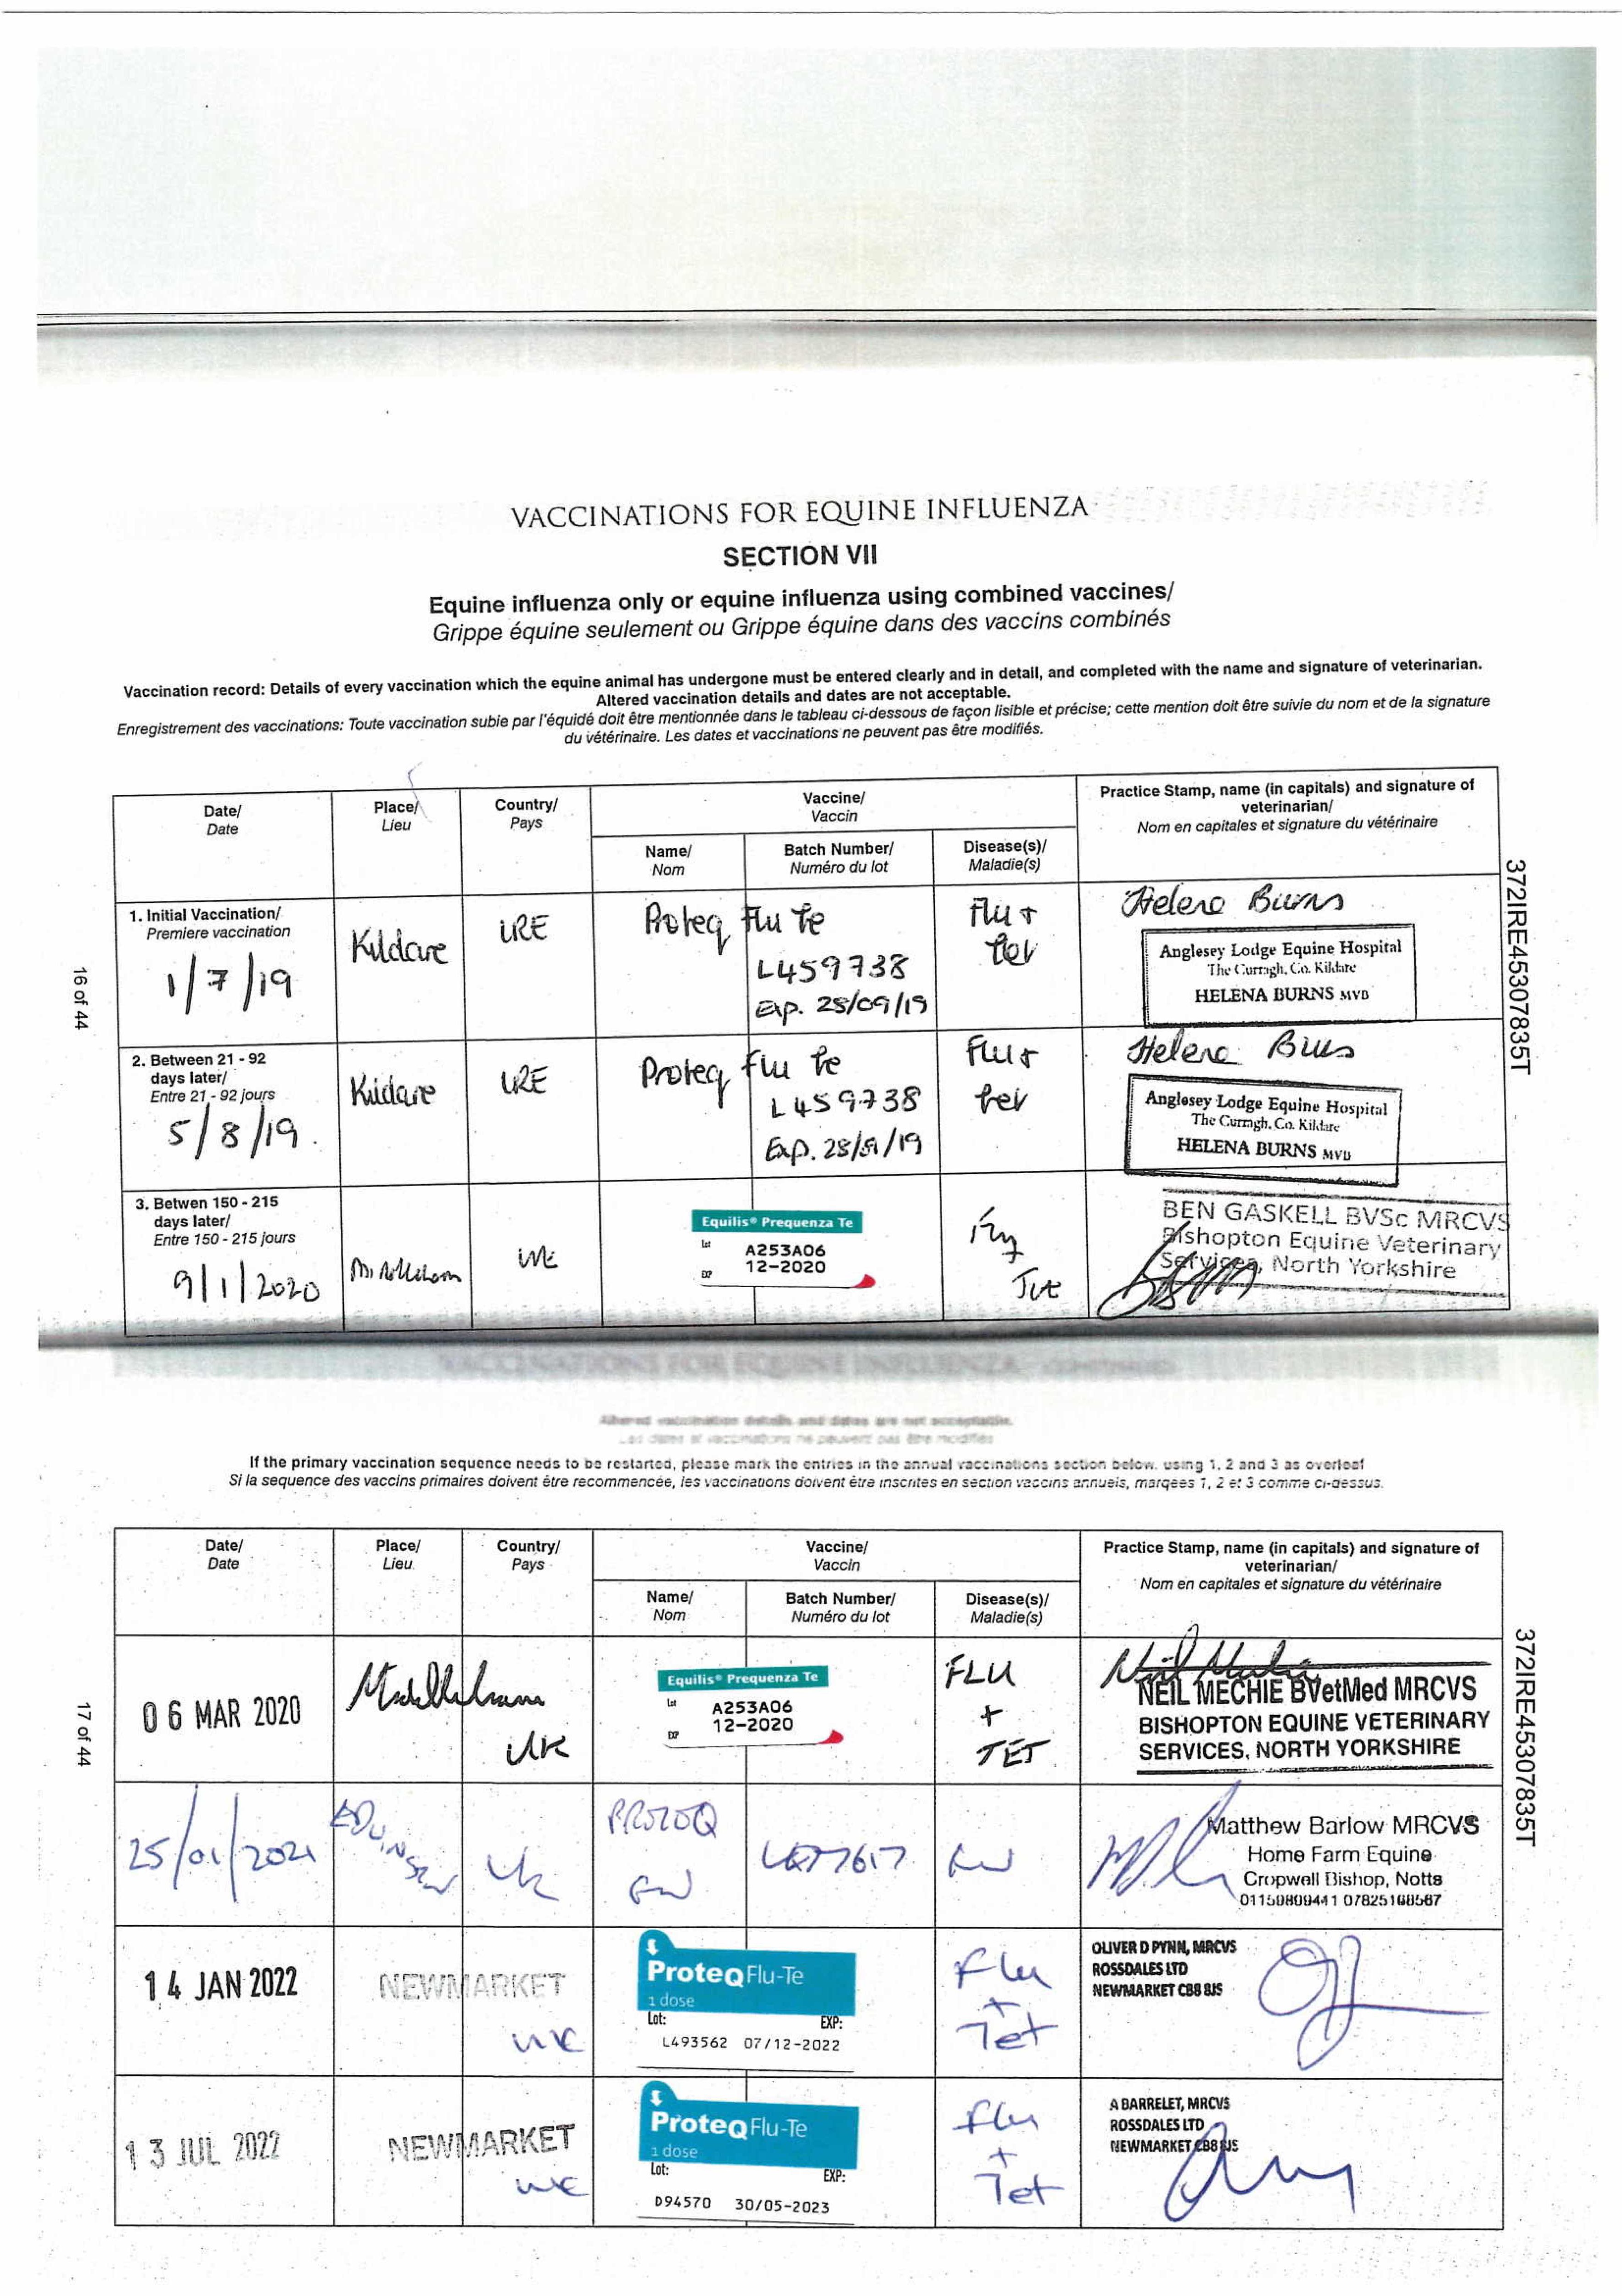 VACCINATIONS FOR EQUINE INFLUENZA
SECTION VII
Equine influenza only or equine influenza using combined vaccines/
Grippe équine seulement ou Grippe équine dans des vaccins combinés
Vaccination record: Details of every vaccination which the equine animal has undergone must be entered clearly and in detail, and completed with the name and signature of veterinarian.
Altered vaccination details and dates are not acceptable.
Enregistrement des vaccinations: Toute vaccination subie par l'équidé doit être mentionnée dans le tableau ci-dessous de façon lisible et précise; cette mention doit être suivie du nom et de la signature
du vétérinaire. Les dates et vaccinations ne peuvent pas être modifiés.
Date/
Date
Place/
Lieu
Country/
Pays
Vaccine/
Vaccin
Name/
Nom
Batch Number/
Numéro du lot
Disease(s)/
Maladie(s)
Practice Stamp, name (in capitals) and signature of
veterinarian/
Nom en capitales et signature du vétérinaire
1. Initial Vaccination/
Premiere vaccination
1/7/19
Kildare
IRE
Proteq Flu Te
L459738
Exp. 28/09/19
Flu +
tet
Helena Burns
Anglesey Lodge Equine Hospital
The Curragh, Co. Kildare
HELENA BURNS MVB
2. Between 21 - 92
days later/
Entre 21 - 92 jours
5/8/19.
Kildare
IRE
Proteq flu te
L459738
Exp. 28/9/19
Flu +
tet
Helena Burns
Anglesey Lodge Equine Hospital
The Curragh, Co. Kildare
HELENA BURNS MVB
3. Betwen 150 - 215
days later/
Entre 150 - 215 jours
9/1/2020
Middleham
UK
Equilis® Prequenza Te
Lot A253A06
EXP 12-2020
Flu
Tet
BEN GASKELL BVSc MRCVS
Bishopton Equine Veterinary
Services, North Yorkshire
16 of 44
372IRE45307835T
VACCINATIONS FOR EQUINE INFLUENZA
Altered vaccination details and dates are not acceptable.
Les dates et vaccinations ne peuvent pas être modifiés
If the primary vaccination sequence needs to be restarted, please mark the entries in the annual vaccinations section below, using 1, 2 and 3 as overleaf
Si la sequence des vaccins primaires doivent être recommencée, les vaccinations doivent être inscrites en section vaccins annuels, marqees 1, 2 et 3 comme ci-dessus.
Date/
Date
Place/
Lieu
Country/
Pays
Vaccine/
Vaccin
Name/
Nom
Batch Number/
Numéro du lot
Disease(s)/
Maladie(s)
Practice Stamp, name (in capitals) and signature of
veterinarian/
Nom en capitales et signature du vétérinaire
06 MAR 2020
Middleham
UK
Equilis® Prequenza Te
Lot A253A06
EXP 12-2020
FLU
+
TET
NEIL MECHIE BVetMed MRCVS
BISHOPTON EQUINE VETERINARY
SERVICES, NORTH YORKSHIRE
25/01/2021
UK
PROTEQ
Flu
Flu
Matthew Barlow MRCVS
Home Farm Equine
Cropwell Bishop, Notts
14 JAN 2022
NEWMARKET
UK
ProteqFlu-Te
1 dose
Lot: EXP:
L493562 07/12-2022
Flu
+
Tet
OLIVER D PYNN, MRCVS
ROSSDALES LTD
NEWMARKET CB8 8JS
13 JUL 2022
NEWMARKET
UK
ProteqFlu-Te
1 dose
Lot: EXP:
D94570 30/05-2023
Flu
+
Tet
A BARRELET, MRCVS
ROSSDALES LTD
NEWMARKET CB8 8JS
17 of 44
372IRE45307835T